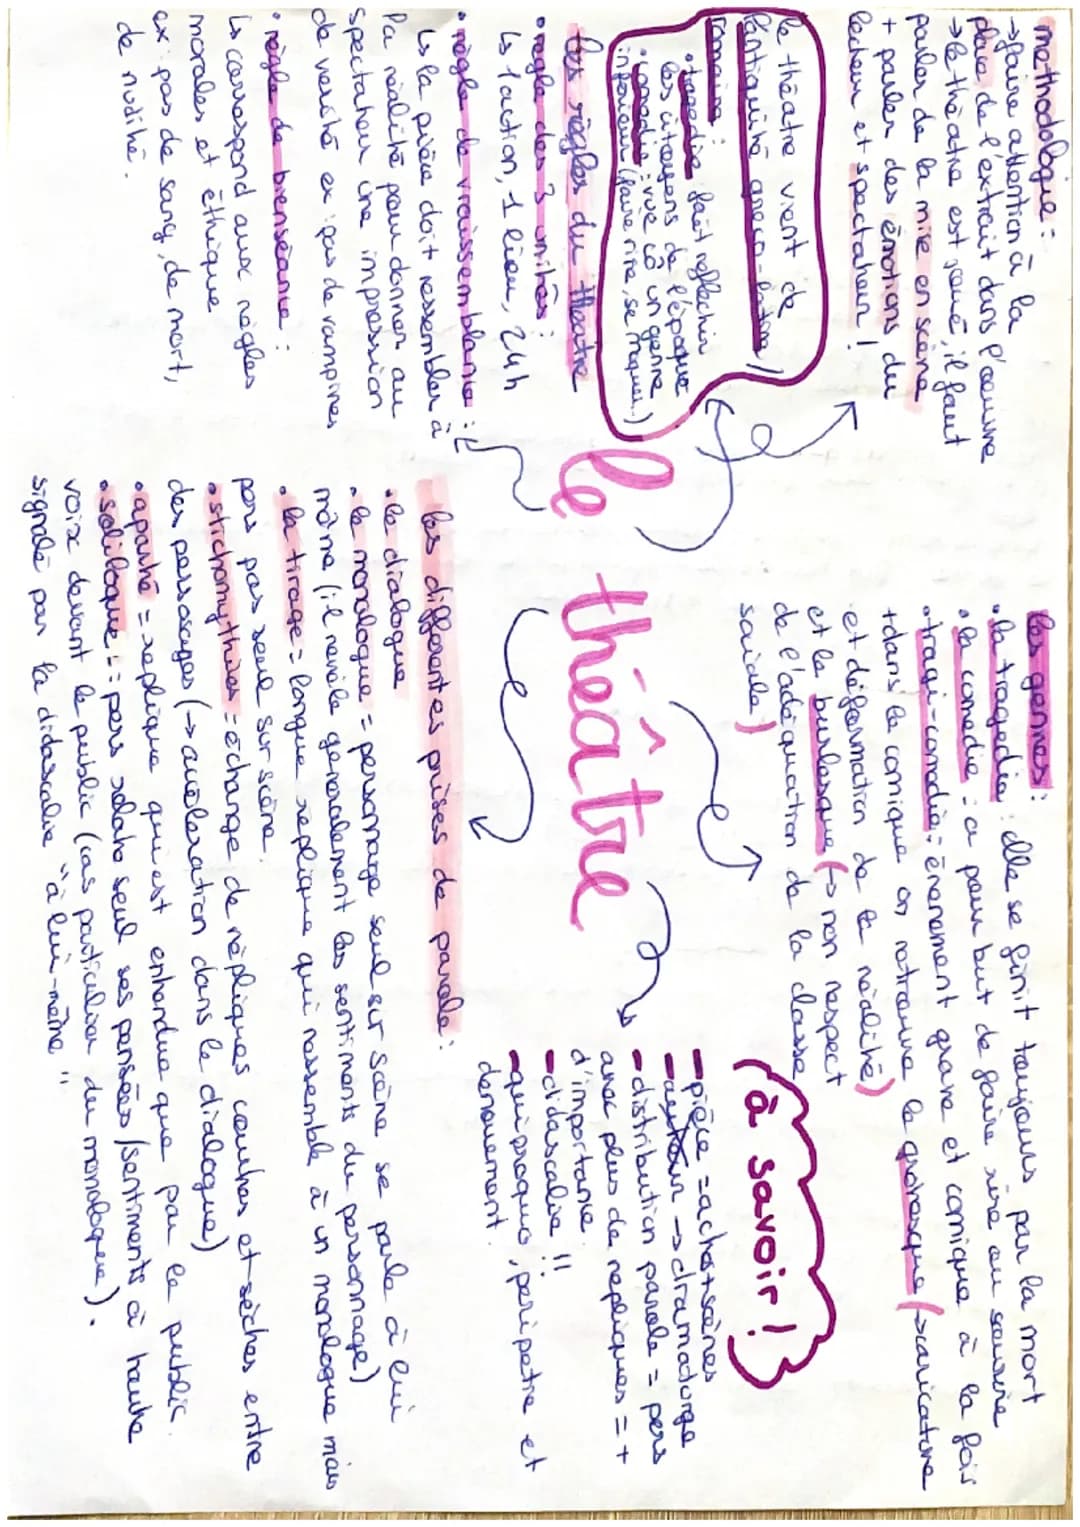 le théâtre
méthodologie :
→ faire attention à la
place de l'extrait dans l'oeuvre
→ le théâtre est joué, il faut
parler de la mise en scène
+ parler des émotions du
lecteur et spectateur !
le théâtre vient de
l'antiquité gréco-latine /
romaine :
• tragédie fait réfléchir
les citoyens de l'époque
• comédie : vue co un genre
inférieur (faire rire, se moquer..)
les règles du théâtre
• règle des 3 unités :
↳ 1 action, 1 lieu, 24h
• règle de vraissemblance :
↳ la pièce doit ressembler à
la réalité pour donner au
spectateur une impression
de vérité ex : pas de vampires
• règle de bienséance :
↳ correspond aux règles
morales et éthique
ex : pas de sang, de mort,
de nudité.
les genres :
• la tragédie : elle se finit toujours par la mort
• la comédie : a pour but de faire rire ou sourire
• tragi-comédie : évènement grave et comique à la fois
+ dans le comique on retrouve le grotesque (→ caricature
et déformation de la réalité)
et le burlesque (→ non respect
de l'adéquation de la classe
sociale)
à savoir !
- pièce = actes + scènes
- auteur → dramaturge
- distribution parole = pers
avec plus de répliques = +
d'importance
- didascalie !!
- quiproquo, péripétie et
dénouement.
les différentes prises de parole :
• le dialogue
• le monologue = personnage seul sur scène se parle à lui
même (il révèle généralement les sentiments du personnage)
• la tirade = longue réplique qui ressemble à un monologue mais
pers pas seul sur scène.
• stichomythies = échange de répliques courtes et sèches entre
des personnages (→ accélération dans le dialogue)
• aparté = réplique qui est entendue que par le public.
• soliloque : = pers relate seul ses pensées / sentiments à haute
voix devant le public (cas particulier du monologue).
signalé par la didascalie "à lui-même"